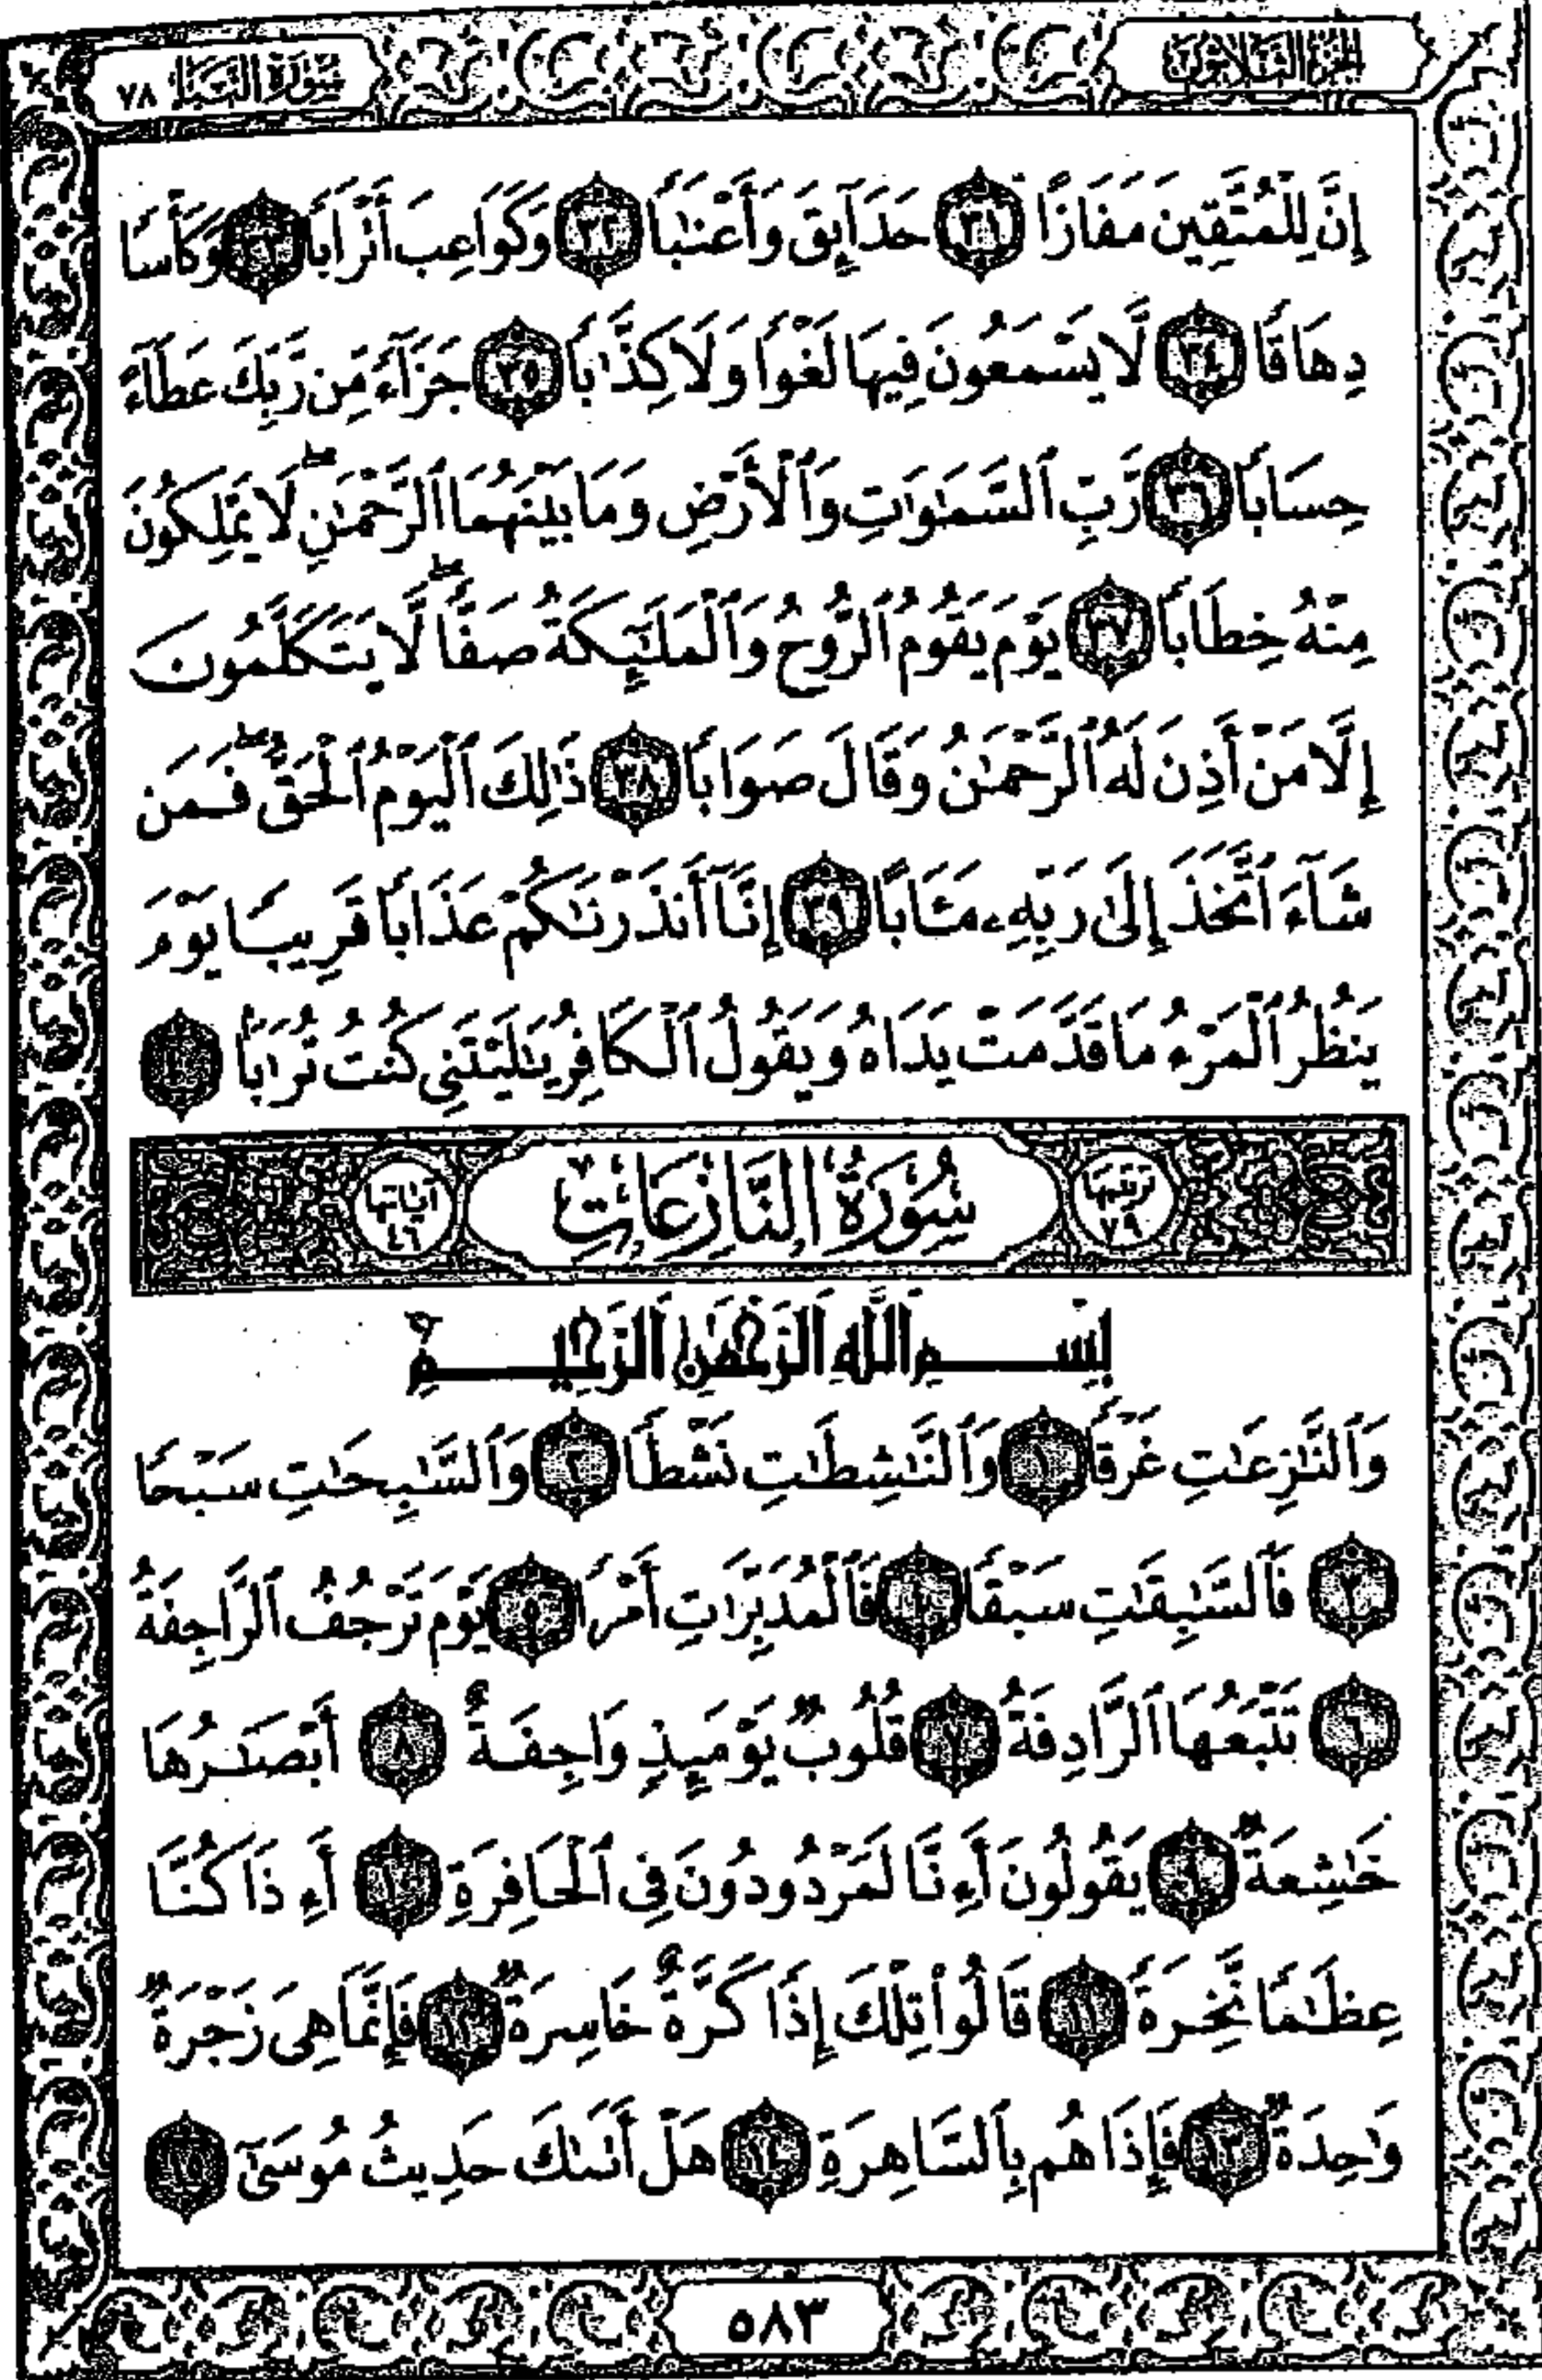 الجزء الثلاثون
سورة النبإ ٧٨
إِنَّ لِلْمُتَّقِينَ مَفَازًا ٣١ حَدَآئِقَ وَأَعْنَٰبًا ٣٢ وَكَوَاعِبَ أَتْرَابًا ٣٣ وَكَأْسًا
دِهَاقًا ٣٤ لَّا يَسْمَعُونَ فِيهَا لَغْوًا وَلَا كِذَّٰبًا ٣٥ جَزَآءً مِّن رَّبِّكَ عَطَآءً
حِسَابًا ٣٦ رَّبِّ ٱلسَّمَٰوَٰتِ وَٱلْأَرْضِ وَمَا بَيْنَهُمَا ٱلرَّحْمَٰنِ ۖ لَا يَمْلِكُونَ
مِنْهُ خِطَابًا ٣٧ يَوْمَ يَقُومُ ٱلرُّوحُ وَٱلْمَلَٰٓئِكَةُ صَفًّا ۖ لَّا يَتَكَلَّمُونَ
إِلَّا مَنْ أَذِنَ لَهُ ٱلرَّحْمَٰنُ وَقَالَ صَوَابًا ٣٨ ذَٰلِكَ ٱلْيَوْمُ ٱلْحَقُّ ۖ فَمَن
شَآءَ ٱتَّخَذَ إِلَىٰ رَبِّهِۦ مَـَٔابًا ٣٩ إِنَّآ أَنذَرْنَٰكُمْ عَذَابًا قَرِيبًا يَوْمَ
يَنظُرُ ٱلْمَرْءُ مَا قَدَّمَتْ يَدَاهُ وَيَقُولُ ٱلْكَافِرُ يَٰلَيْتَنِى كُنتُ تُرَٰبًۢا ٤٠
ترتيبها ٧٩ سُورَةُ النَّازِعَاتِ آياتها ٤٦
بِسْمِ ٱللَّهِ ٱلرَّحْمَٰنِ ٱلرَّحِيمِ
وَٱلنَّٰزِعَٰتِ غَرْقًا ١ وَٱلنَّٰشِطَٰتِ نَشْطًا ٢ وَٱلسَّٰبِحَٰتِ سَبْحًا
٣ فَٱلسَّٰبِقَٰتِ سَبْقًا ٤ فَٱلْمُدَبِّرَٰتِ أَمْرًا ٥ يَوْمَ تَرْجُفُ ٱلرَّاجِفَةُ
٦ تَتْبَعُهَا ٱلرَّادِفَةُ ٧ قُلُوبٌ يَوْمَئِذٍ وَاجِفَةٌ ٨ أَبْصَٰرُهَا
خَٰشِعَةٌ ٩ يَقُولُونَ أَءِنَّا لَمَرْدُودُونَ فِى ٱلْحَافِرَةِ ١٠ أَءِذَا كُنَّا
عِظَٰمًا نَّخِرَةً ١١ قَالُوا۟ تِلْكَ إِذًا كَرَّةٌ خَاسِرَةٌ ١٢ فَإِنَّمَا هِىَ زَجْرَةٌ
وَٰحِدَةٌ ١٣ فَإِذَا هُم بِٱلسَّاهِرَةِ ١٤ هَلْ أَتَىٰكَ حَدِيثُ مُوسَىٰٓ ١٥
٥٨٣